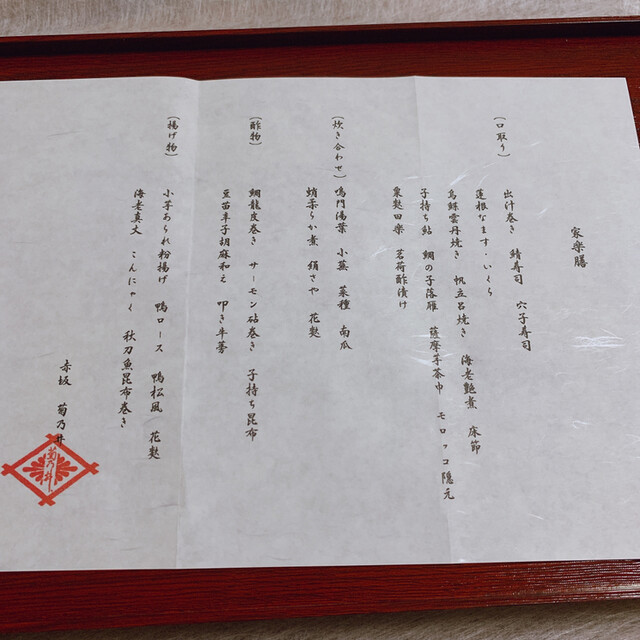 家楽膳
(口取り)
出汁巻き 鯖寿司 穴子寿司
蓮根なます・いくら
烏賊雲丹焼き 帆立旨焼き 海老艶煮 床節
子持ち鮎 鯛の子落雁 薩摩芋茶巾 モロッコ隠元
粟麩田楽 茗荷酢漬け
(炊き合わせ)
鳴門湯葉 小蕪 菜種 南瓜
蛸柔らか煮 絹さや 花麩
(酢物)
鯛龍皮巻き サーモン砧巻き 子持ち昆布
豆苗辛子胡麻和え 叩き牛蒡
(揚げ物)
小芋あられ粉揚げ 鴨ロース 鴨松風 花麩
海老真丈 こんにゃく 秋刀魚昆布巻き
赤坂 菊乃井
菊乃井